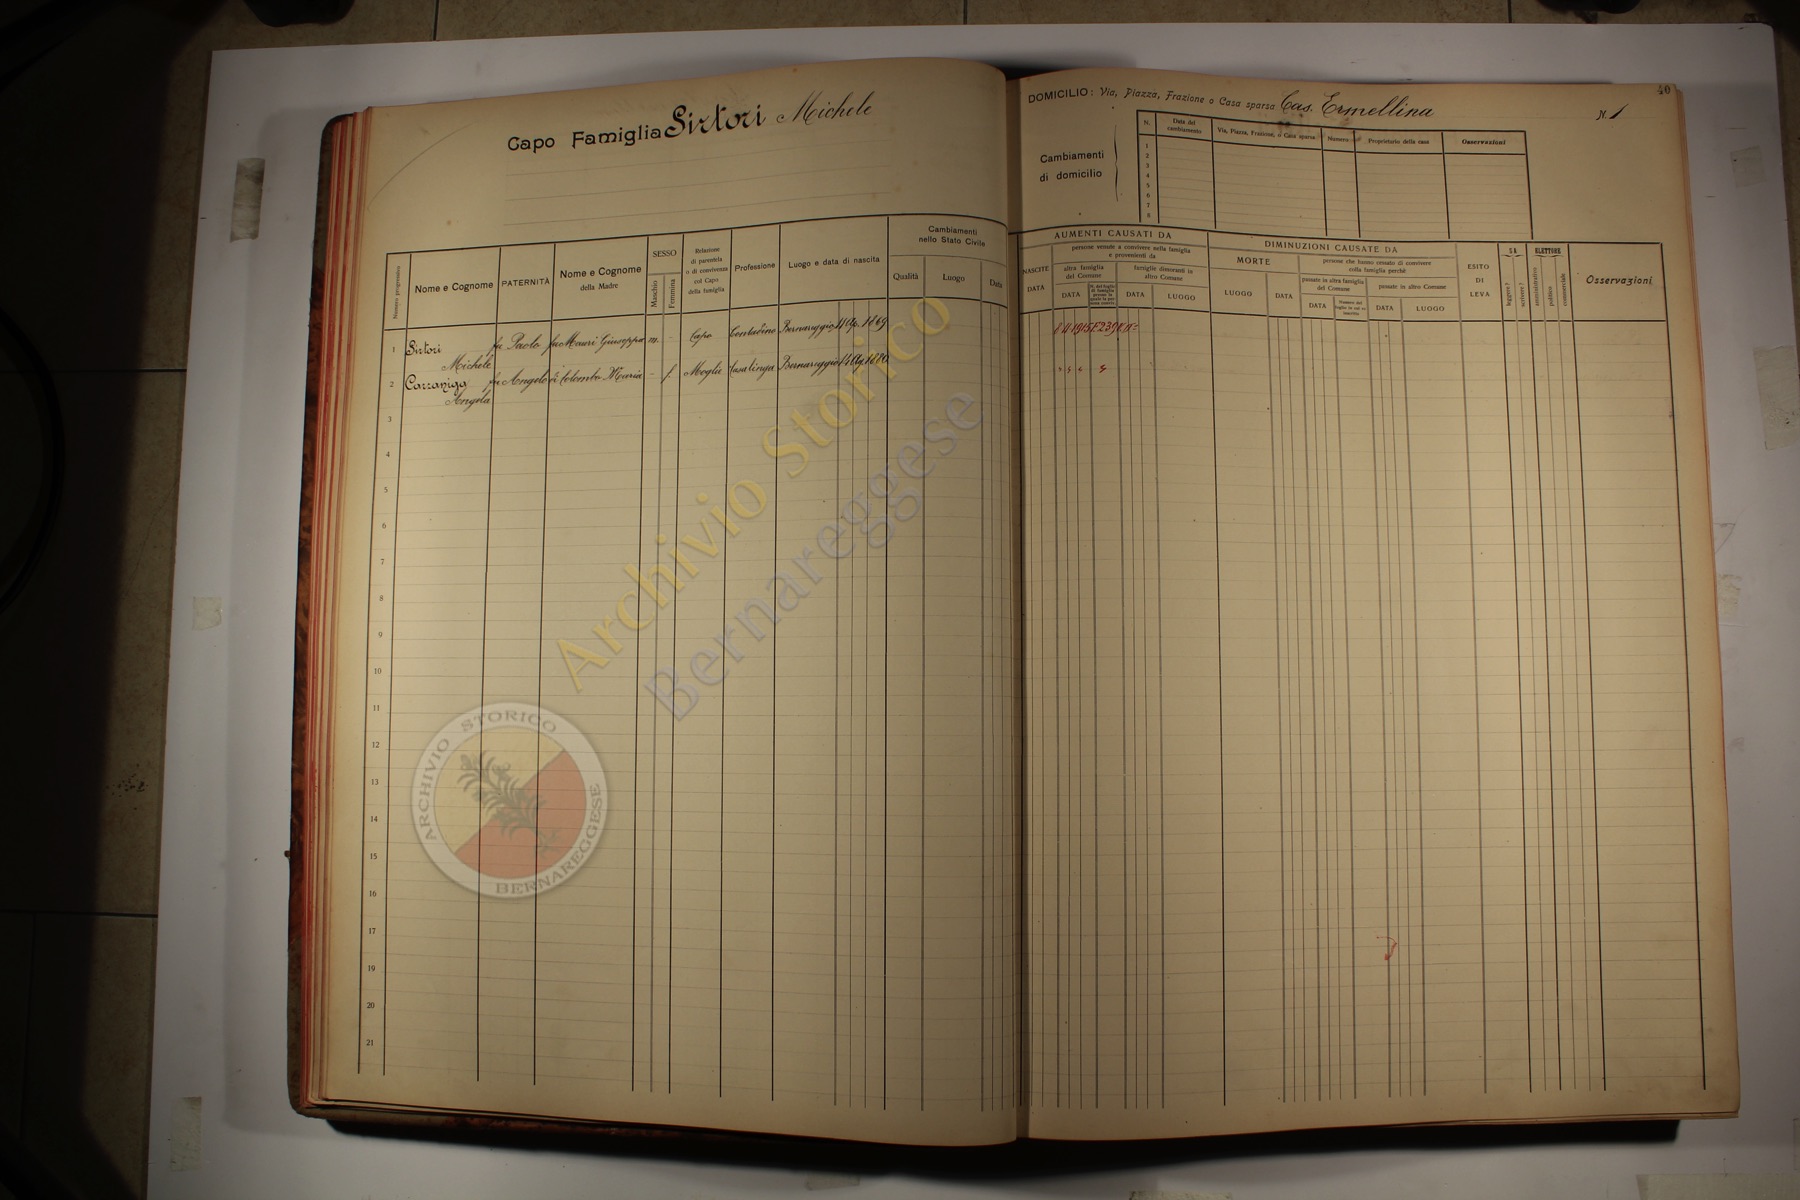 Capo Famiglia Sirtori Michele
Numero progressivo
Nome e Cognome
PATERNITÀ
Nome e Cognome
della Madre
SESSO
Maschio
Femmina
Relazione
di parentela
o di convivenza
col Capo
della famiglia
Professione
Luogo e data di nascita
Cambiamenti
nello Stato Civile
Qualità
Luogo
Data
1 Sirtori fu Paolo fu Mauri Giuseppa m. Capo Contadino Bernareggio 1869
Michele
2 Carzaniga fu Angelo di Colombo Maria - f. Moglie Casalinga Bernareggio 1880
Angela
3
4
5
6
7
8
9
10
11
12
13
14
15
16
17
18
19
20
21
40
DOMICILIO: Via, Piazza, Frazione o Casa sparsa Cas. Ermellina N. 1
Cambiamenti
di domicilio
N.
Data del
cambiamento
Via, Piazza, Frazione, o Casa sparsa
Numero
Proprietario della casa
Osservazioni
1
2
3
4
5
6
7
8
AUMENTI CAUSATI DA
NASCITE
DATA
persone venute a convivere nella famiglia
e provenienti da
altra famiglia
del Comune
famiglie dimoranti in
altro Comune
DATA
N. del foglio
di famiglia
presso la
quale la per-
sona convive
DATA
LUOGO
DIMINUZIONI CAUSATE DA
MORTE
LUOGO
DATA
persone che hanno cessato di convivere
colla famiglia perchè
passate in altra famiglia
del Comune
passate in altro Comune
DATA
DATA
LUOGO
ESITO
DI
LEVA
SA
leggere?
scrivere?
ELETTORE
amministrativo
politico
commerciale
Osservazioni
Archivio Storico
Bernareggese
ARCHIVIO STORICO
BERNAREGGESE